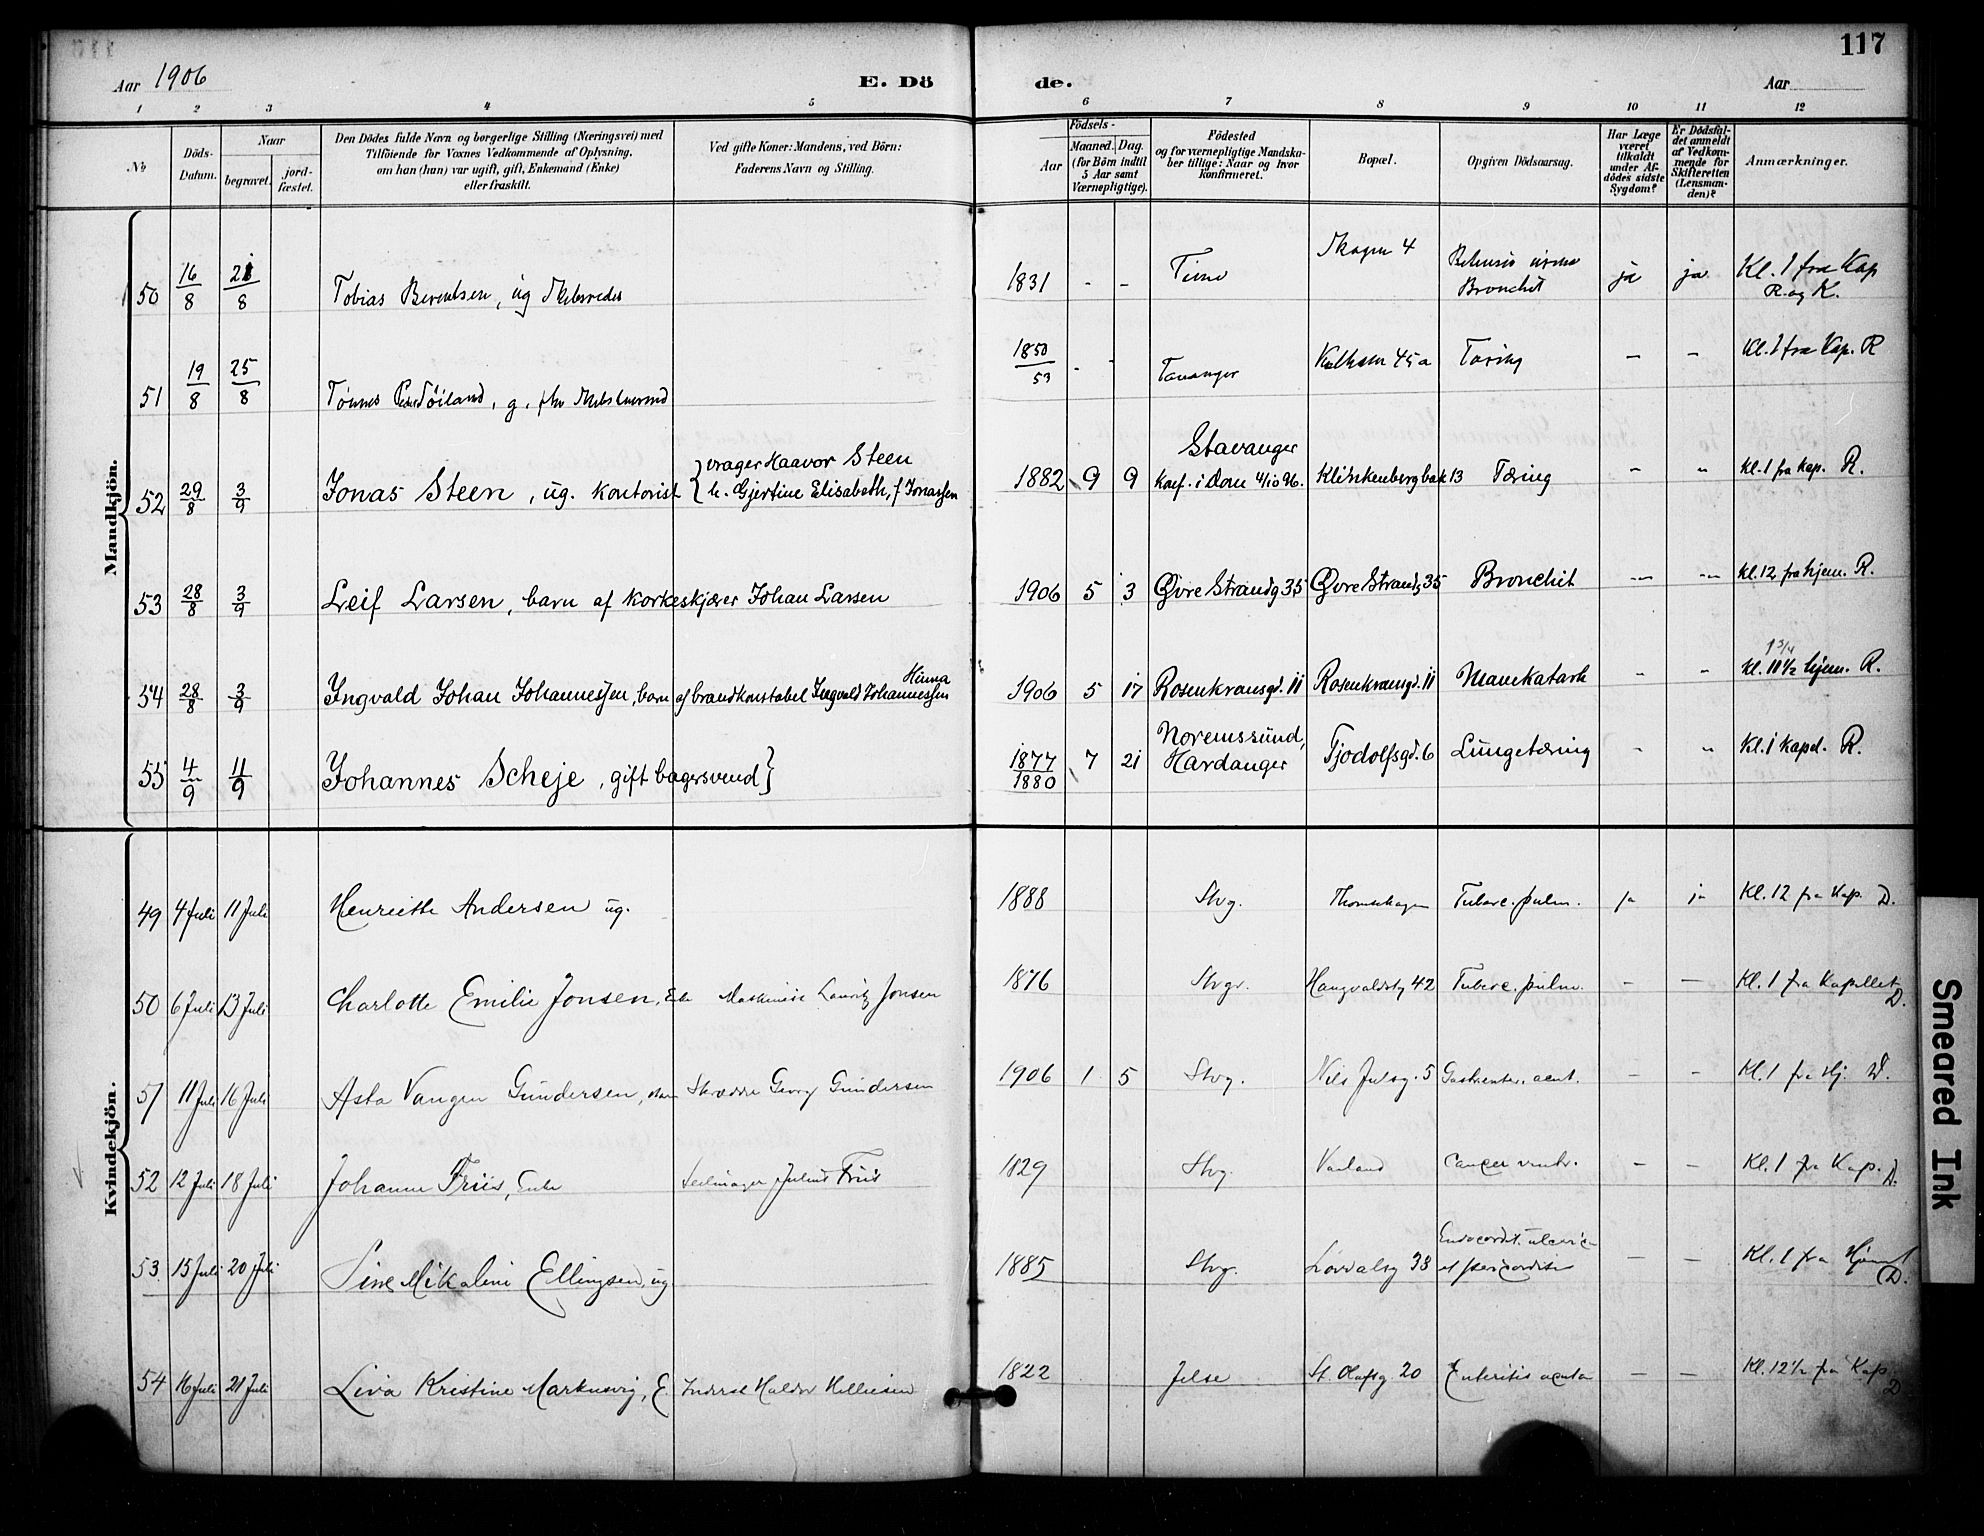 117
Aar 1906
E. Dö
de.
Aar
1 2 3 4 5 6 7 8 9 10 11 12
No
Döds-Datum.
Naar
begravet.
jord-fæstet.
Den Dödes fulde Navn og borgerlige Stilling (Næringsvei) med
Tilföiende for Voxnes Vedkommende af Oplysning,
om han (hun) var ugift, gift, Enkemand (Enke)
eller fraskilt.
Ved gifte Koner: Mandens, ved Börn:
Faderens Navn og Stilling.
Födsels-
Aar
Maaned. Dag.
(for Börn indtil
5 Aar samt
Værnepligtige).
Födested
og for værnepligtige Mandska-
ber tillige: Naar og hvor
konfirmeret.
Bopæl.
Opgiven Dödsaarsag.
Har Læge
været
tilkaldt
under Af-
dödes sidste
Sygdom?
Er Dödsfal-
det anmeldt
af Vedkom-
mende for
Skifteretten
(Lensman-
den)?
Anmærkninger.
Mandkjön.
50 16/8 21/8 Tobias Berentsen, ug 1831 - - Time Skagen 4 Bronchit ja ja Kl. 1 fra Kap R. og K.
51 19/8 25/8 Tönnes Töiland, g. 1850/53 - - Tananger 45a Tæring - - Kl. 1 fra Kap. R
52 29/8 3/9 Jonas Steen, ug. kontorist { vrager Haavor Steen h. Gjertine Elisabeth, f Jonassen 1882 9 9 Stavanger konf. i Dom 4/10 96. Klinkenbergbak 13 Tæring - - Kl. 1 fra kap. R.
53 28/8 3/9 Leif Larsen, barn af korkeskjærer Johan Larsen 1906 5 3 Øvre Strandg 35 Øvre Strandg 35 Bronchit - - Kl. 12 fra hjem. R.
54 28/8 3/9 Ingvald Johan Johannessen, barn af brandkonstabel Ingvald Johannessen Hinna 1906 5 17 Rosenkransgd. 11 Rosenkransgd. 11 Mavekatarh - - 1 3/4 Kl. 11 1/2 hjem. R.
55 4/9 11/9 Johannes Scheje, gift bagersvend } 1877/1880 7 21 Noremssund, Hardanger Tjodolfsgd. 6 Lungetæring - - Kl. 1 kapel. R.
Kvindekjön.
49 4 Juli 11 Juli Henriette Andersen ug. 1888 Stvg. Tuberc. pulm. ja ja Kl. 12 fra Kap. D.
50 6 Juli 13 Juli Charlotte Emilie Jonsen, Maskinist Lauritz Jonsen 1876 Stvgr. Haugvaldstg 42 Tuberc. pulm. - - Kl. 1 fra Kapellet D.
51 11 Juli 16 Juli Asta Vangen Gundersen, Skrædder Georg Gundersen 1906 1 5 Stvg. Nils Juelsg. 5 Gastroenter. acut. - - Kl. 1 fra Hj. D.
52 12 Juli 18 Juli Johanne Friis, Enke Seilmager Julius Friis 1829 Stvg Varland Cancer ventr. - - Kl. 1 fra Kap. D.
53 15 Juli 20 Juli Sine Mikaline Ellingsen, ug 1885 Stvg. Lövdalsg 38 Endocardit. ulceros. et pericarditis - - Kl. 1 fra Hjemmet D.
54 16 Juli 21 Juli Liva Kristine Markusvig, E. Halder Helliesen 1822 Jelse St. Olafsg 20 Enteritis acuta - - Kl. 12 1/2 fra Kap. D
Smeared Ink